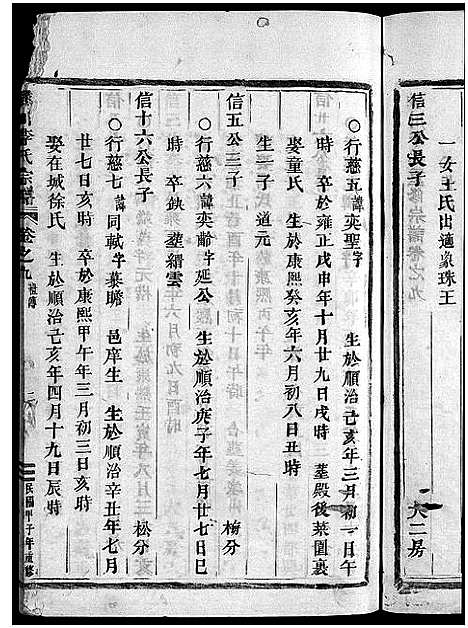 一女王氏出適象珠王
大二房
信三公長子
○行慈五諱奕聖字 生於順治己亥年三月初一日午
時 卒於雍正戊申年十月廿九日戌時 塟殿後菜園裏
娶童氏 生於康熙癸亥年六月初八日丑時
信五公三子 梅分
○行慈六諱奕齡字延公 生於順治庚子年七月廿七日巳
時 卒缺 塟縉雲
信十六公長子 松分
○行慈七諱同軾字慕瞻 邑庠生 生於順治辛丑年七月
廿七日亥時 卒於康熙甲午年三月初三日亥時
娶在城徐氏 生於順治己亥年四月十九日辰時
李氏宗譜 卷之九 民國甲子年重修